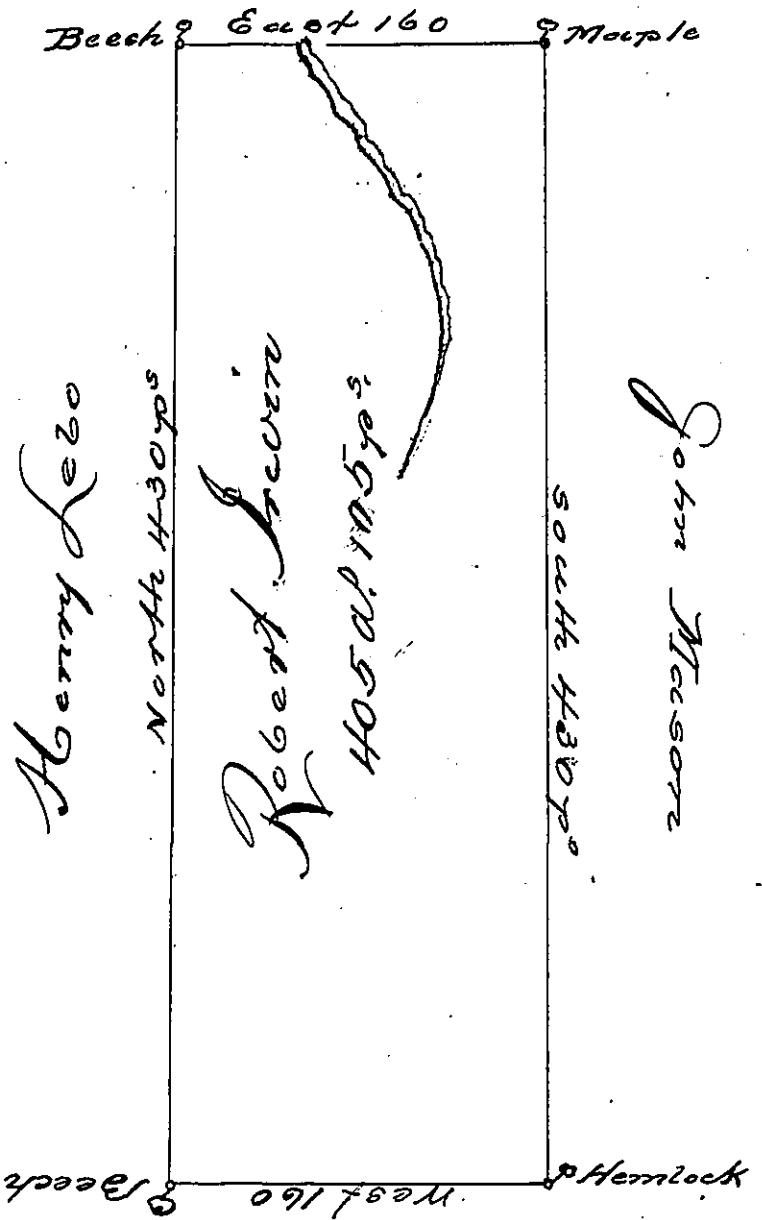 Beech East 160 Maple
Henry Lebo
North 430 ps
Robert Irwin
405 a. 105 ps.
South 430 ps
John Mason
Beech West 160 Hemlock